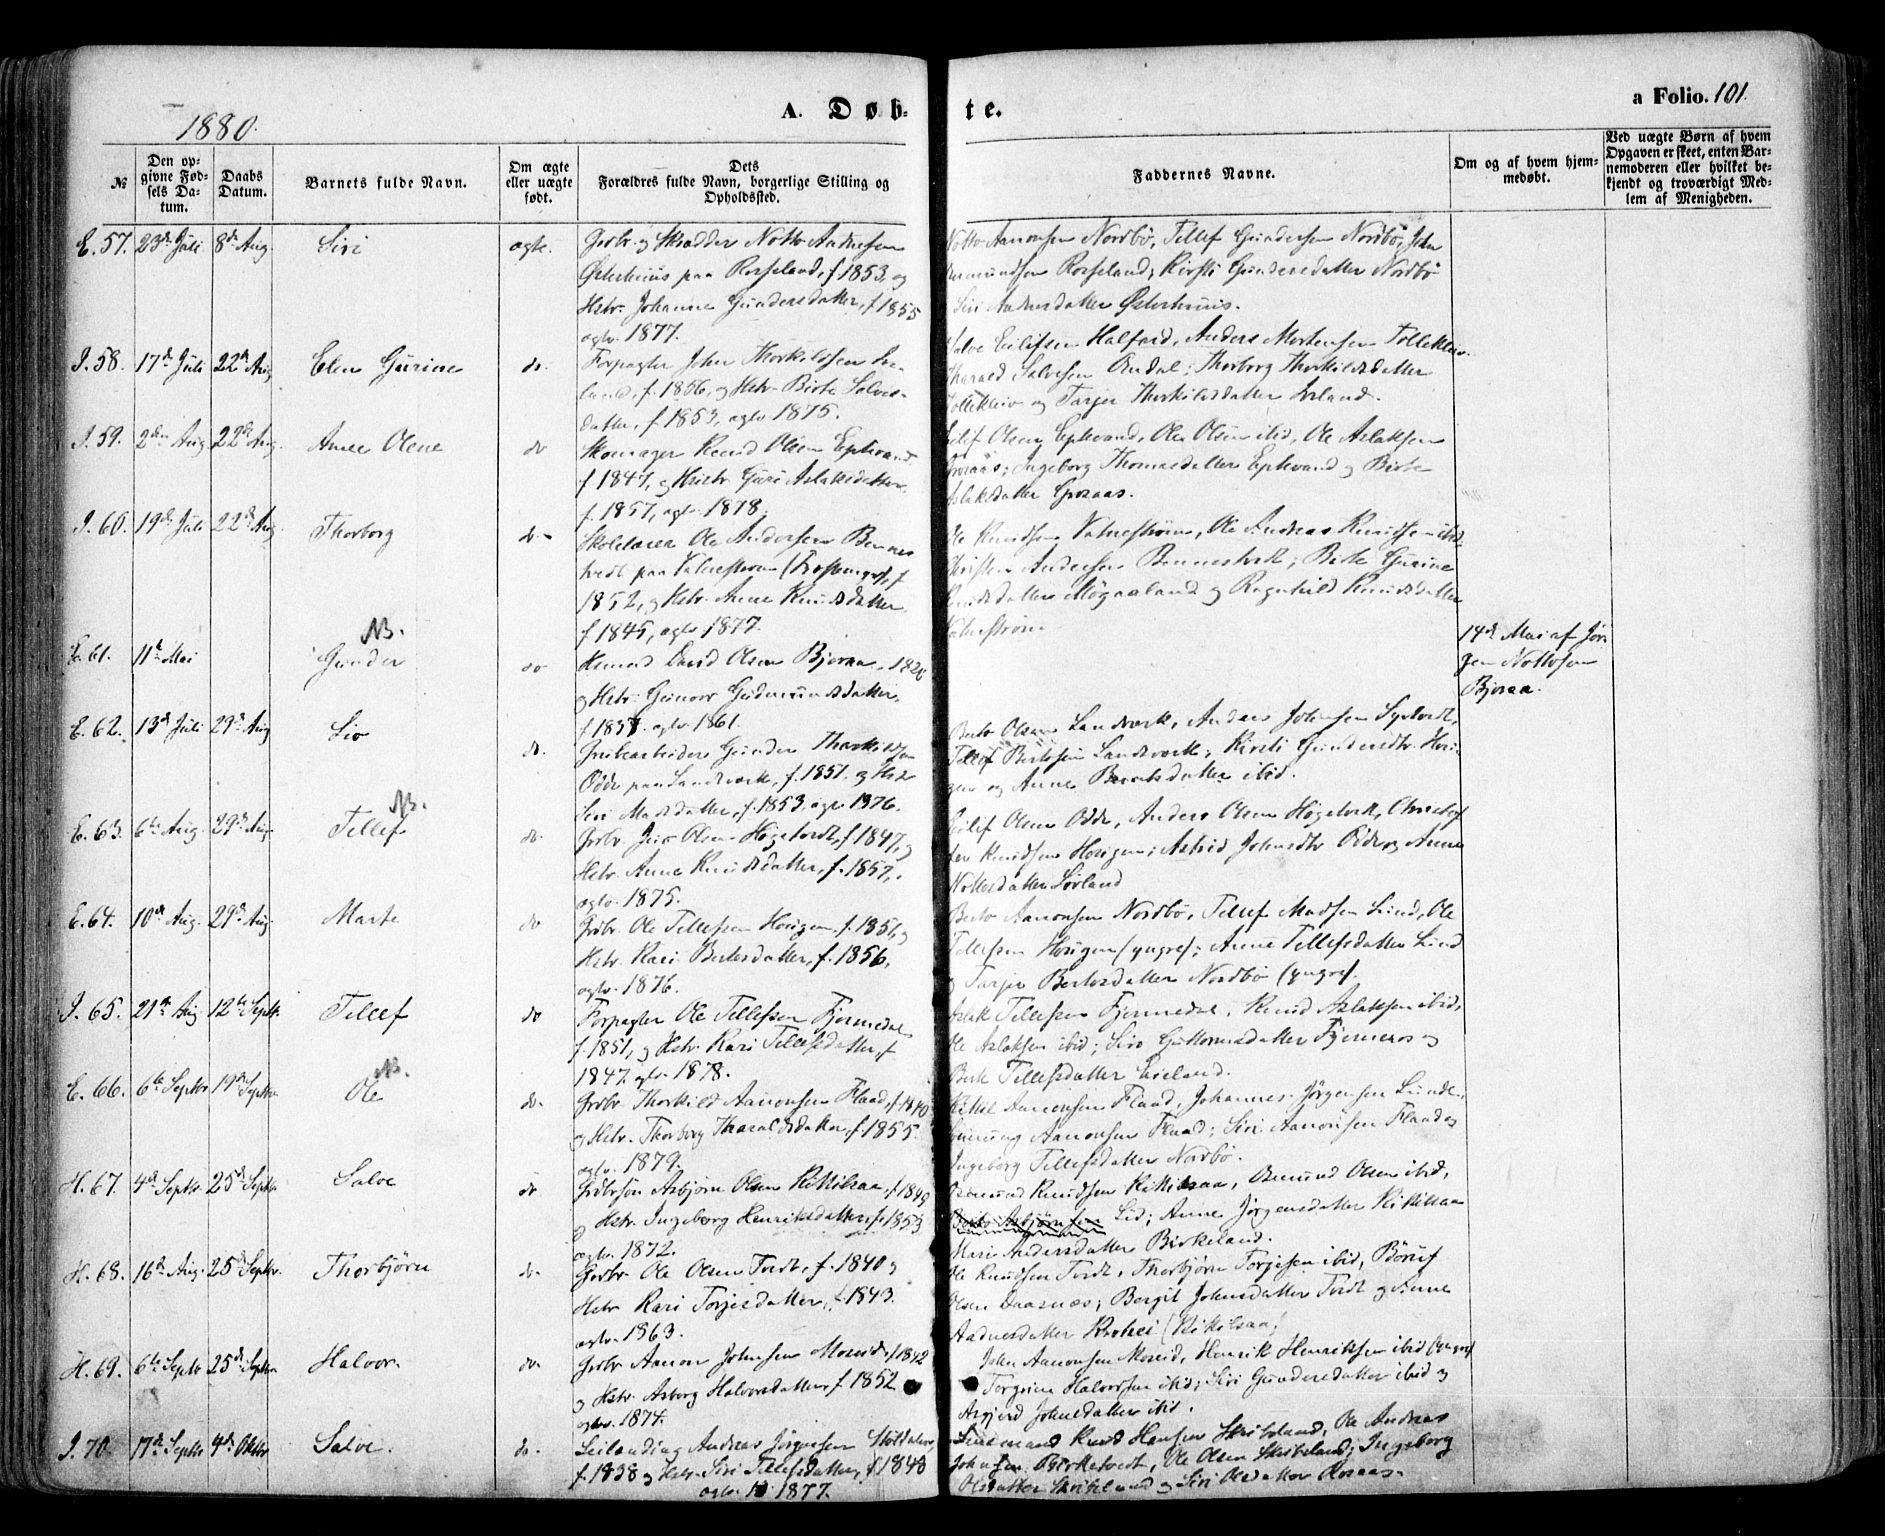 1880.
A. Døb-
te.
a Folio. 101.
№
Den op-
givne Fød-
sels Da-
tum.
Daabs
Datum.
Barnets fulde Navn.
Om ægte
eller uægte
født.
Dets
Forældres fulde Navn, borgerlige Stilling og
Opholdssted.
Faddernes Navne.
Om og af hvem hjem-
medøbt.
Ved uægte Børn af hvem
Opgaven er skeet, enten Bar-
nemoderen eller hvilket be-
kjendt og troværdigt Med-
lem af Menigheden.
E. 57. 23de Juli 8de Aug Siri ægte.
Grbr. og Skrædder Notto Aadnesen
Østerhuus paa Rosseland, f 1853. og
Hstr. Johanne Gundersdatter, f 1855
ægtv. 1877.
Notto Aanonsen Nordbö, Tellef Gundersen Nordbö, John
Rosseland; Kirsti Gundersdatter Nordbö
Siri Aadnesdatter Østerhuus.
I. 58. 17de Juli 22de Aug Elen Gurine do.
Forpagter John Thorkildsen
f. 1856, og Hstr. Birte Salves-
datter, f 1853, ægtv 1875.
Salve Eilifsen Halfard, Anders Mortensen Tolleklev
Tharald Salvesen Omdal; Thorborg Thorkildsdatter
Tolleklev og Tarjer Thorkildsdatter
I. 59. 2den Aug 22de Aug. Anne Olene do
Skomager Knud Olsen Epkvand
f 1847, og Hustr. Guri Aslaksdatter,
f. 1857, ægtv. 1878.
Eilef Olsen Epkvand, Ole Olsen ibid, Ole Aslaksen
Grosaas; Ingeborg Thomasdatter Epkvand og Birte
Aslaksdatter Grosaas.
I. 60. 19de Juli 22de Aug Thorborg do
Skolelærer Ole Andersen Bennes-
tvedt paa Vatnestrøm f
1852, og Hstr. Anne Knudsdatter
f 1845, ægtv 1877.
Ole Knudsen Vatnestrøm, Ole Andreas Knudsen ibid.
Christen Andersen Bennestvedt; Birte Gurine
Knudsdatter Møgaaland og Ragnhild Knudsdatter
Vatnestrøm
E. 61. 11te Mai NB. Gunder do
David Olsen Bjoraa 1826
og Hstr. Gunvor Gudmundsdatter,
f 1837 ægtv. 1861.
14de Mai af Jør-
gen Nottosen
Bjoraa.
E. 62. 13de Juli 29de Aug Siv do.
Grubearbeider Gunder Thorkildsen
Odde paa Landsverk, f. 1851. og Hstr
Siri Madsdatter, f. 1853. ægtv 1876.
Berte Olsen Landsverk, Anders Johnsen
Tellef Bertosen Landsverk; Kirsti Gundersdtr. Hori-
gen og Anne ibid.
E. 63. 6te Aug. 29de Aug NB. Tellef do
Grbr. Jens Olsen Høgetvedt, f 1847, og
Hstr. Anne Knudsdatter, f. 1857,
ægtv. 1875.
Eilef Olsen Odde, Anders Olsen Høgetvedt, Christof-
fer Knudsen Horigen; Astrid Johnsdtr Odde og Anne
Nottosdatter Sørland
E. 64. 10de Aug. 29de Aug Marte do
Grbr. Ole Tellefsen Horigen, f. 1851, og
Hstr. Kari Bertosdatter, f. 1856,
ægtv. 1876.
Berto Aanonsen Nordbö, Tellef Madsen Lund, Ole
Tellefsen Horigen (yngre); Anne Tellefsdatter Lund
og Tarjer Bertosdatter Nordbö (yngre).
I. 65. 21de Aug 12te Septbr. Tellef do
Forpagter Ole Tellefsen Fjermedal
f 1851, og Hstr. Kari Tellefsdatter, f
1847 ægtv. 1878.
Aslak Tellefsen Fjermedal, Knud Aslaksen ibid,
Ole Aslaksen ibid; Siri Guttormsdatter Fjermeros og
Berte Tellefsdatter
E. 66. 6te Septbr 19de Septbr. NB. Ole do.
Grbr. Thorkild Aanonsen Flaad, f 1840
og Hstr. Thorborg Tharaldsdatter, f 1855.
ægtv. 1879.
Ketil Aanonsen Flaad, Johannes Jørgensen Lunde,
Aanonsen Flaad; Siri Aanonsen Flaad og
Ingeborg Tellefsdatter Nordbö.
H. 67. 4de Septbr. 25de Septbr. Salve do
Grbrsøn Asbjørn Olsen Kittilsaa, f 1849
og Hstr. Ingeborg Henriksdatter, f 1853
ægtv. 1872.
Osmund Knudsen Kittilsaa, Osmund Olsen ibid,
Berto Asbjørnsen Lid; Anne Jørgensdatter Kittilsaa
Mari Andersdatter Birkeland.
H. 68. 16de Aug. 25de Septbr. Thorbjørn do.
Grbr. Ole Olsen Tvedt, f. 1840 og
Hstr Kari Torjesdatter, f 1843.
ægtv. 1863.
Ole Knudsen Tvedt, Thorbjørn Torjesen ibid, Børuf
Olsen Daasnæs; Bergit Johnsdatter Tvedt og Anne
Aadnesdatter (Kittilsaa)
H. 69. 6te Septbr 25de Septbr Halvor do.
Grbr Aanon Johnsen Moseid, f 1842
og Hstr. Asborg Halvorsdatter f. 1852
ægtv. 1874.
John Aanonsen Moseid, Henrik Henriksen ibid (yngre)
Torgrim Halvorsen ibid; Siri Gundersdatter ibid og
Asgjerd Johnsdatter ibid.
I. 70. 17de Septbr 4de Oktbr Salve. do.
Leilænding Andreas Jørgensen
f. 1838 og Hstr. Siri Tellefsdatter, f 1848
ægtv. 1877.
Knud Hansen Skribeland, Ole Andreas
Johnsen Birketvedt, Ole Olsen Skribeland; Ingeborg
Olsdatter Skribeland og Siri Olsdatter Rosaas.